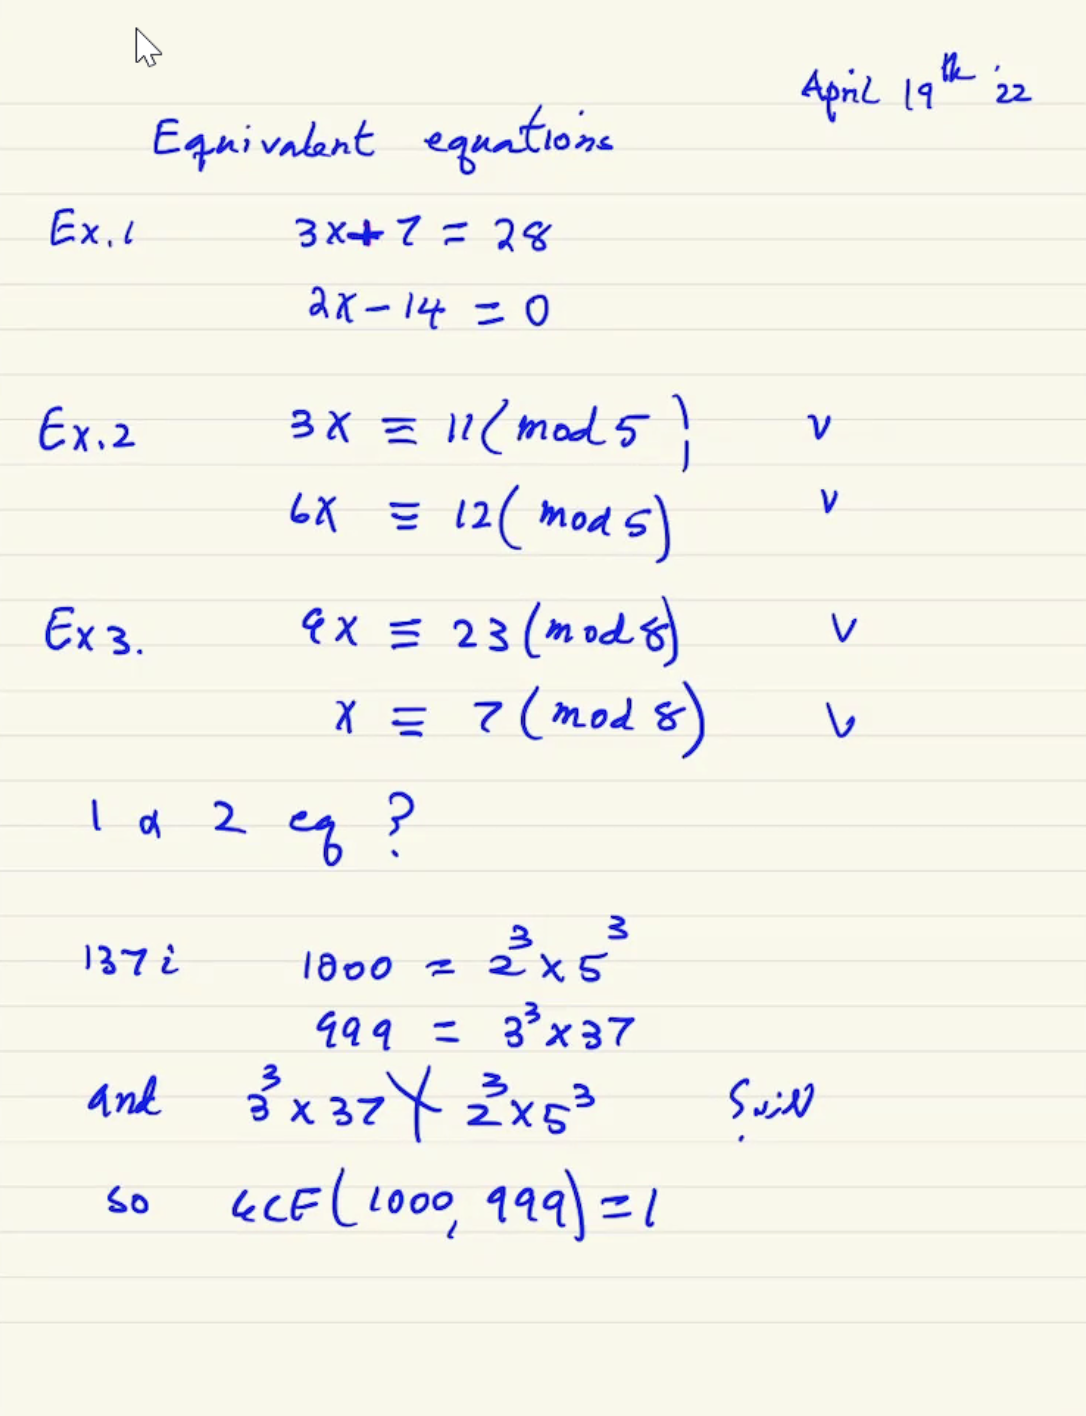 April 19th '22
Equivalent equations
Ex.1 3x+7 = 28
2x-14 = 0
Ex.2 3x ≡ 11(mod 5) v
6x ≡ 12(mod 5) v
Ex3. 9x ≡ 23(mod 8) v
x ≡ 7(mod 8) v
1 α 2 eq ?
137i 1000 = 2³×5³
999 = 3³×37
and 3³×37 ∤ 2³×5³
so GCF(1000, 999)=1